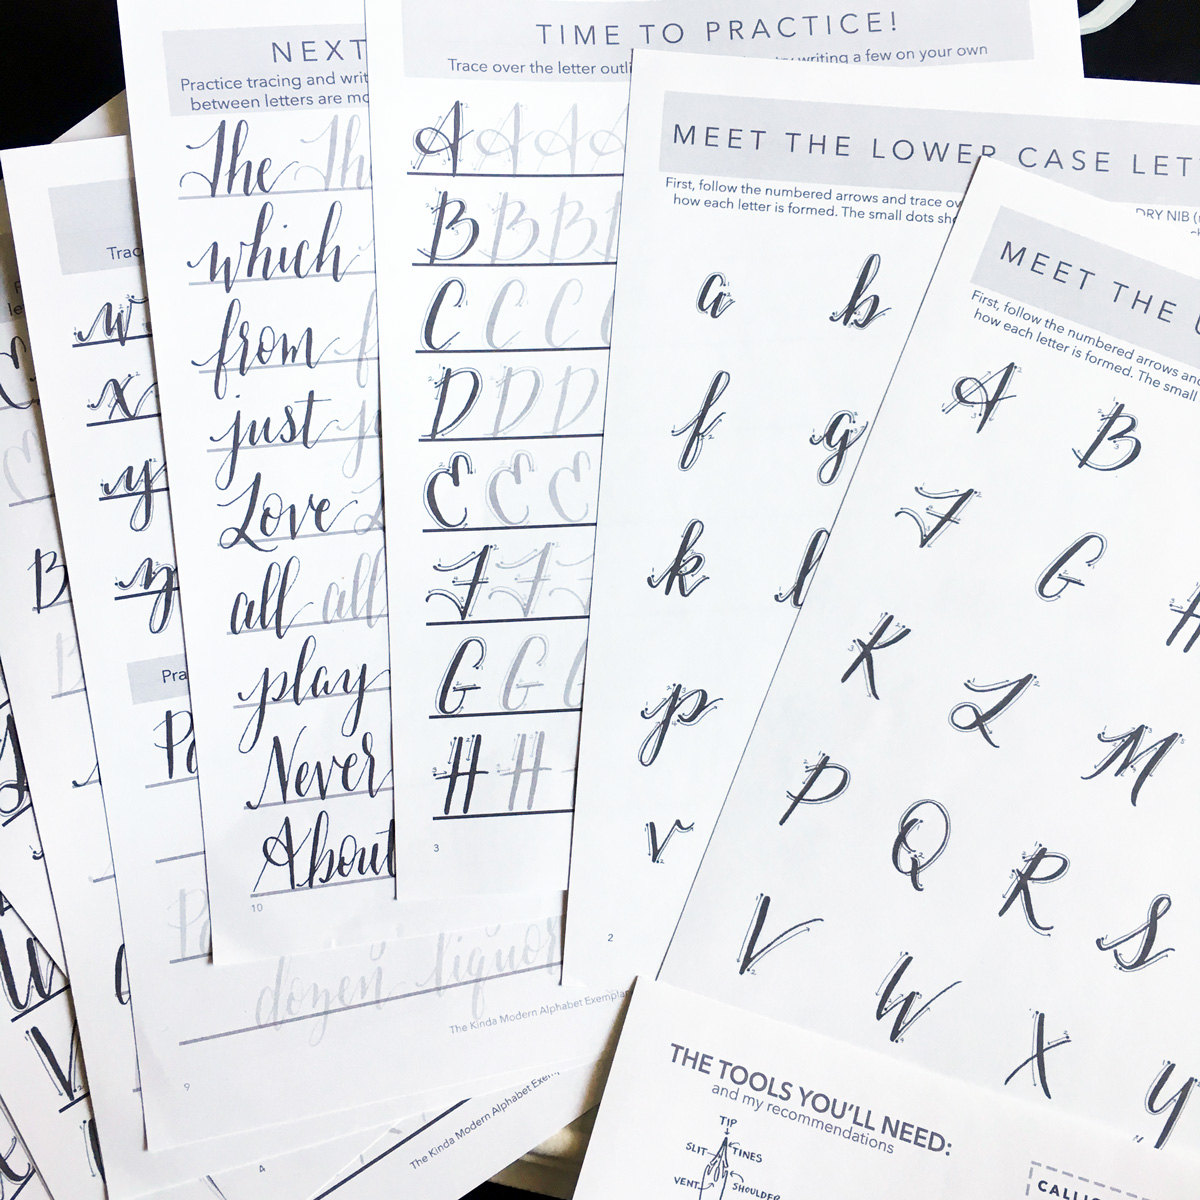 NEXT
Practice tracing and writ
between letters are mo
The Th
which
from f
just ju
Love L
all all
play
Never
About
10
TIME TO PRACTICE!
Trace over the letter outli
try writing a few on your own
A A A A
B B B B
C C C C C
D D D D
E E E
F F F
G G G
H H
3
MEET THE LOWER CASE LET
First, follow the numbered arrows and trace ov
DRY NIB (
how each letter is formed. The small dots sh
a b
f g
k l
p
v
2
MEET THE U
First, follow the numbered arrows and
how each letter is formed. The small
A B
F G H
K L M
P Q R S
V W X Y
THE TOOLS YOU'LL NEED:
and my recommendations
TIP
SLIT TINES
VENT SHOULDER
CALLI
Trac
w
x
y
z
Pra
Po
Po
dozen liquor
The Kinda Modern Alphabet Exemplar
9
The Kinda Modern Alphabet Exem
4
B
B
V